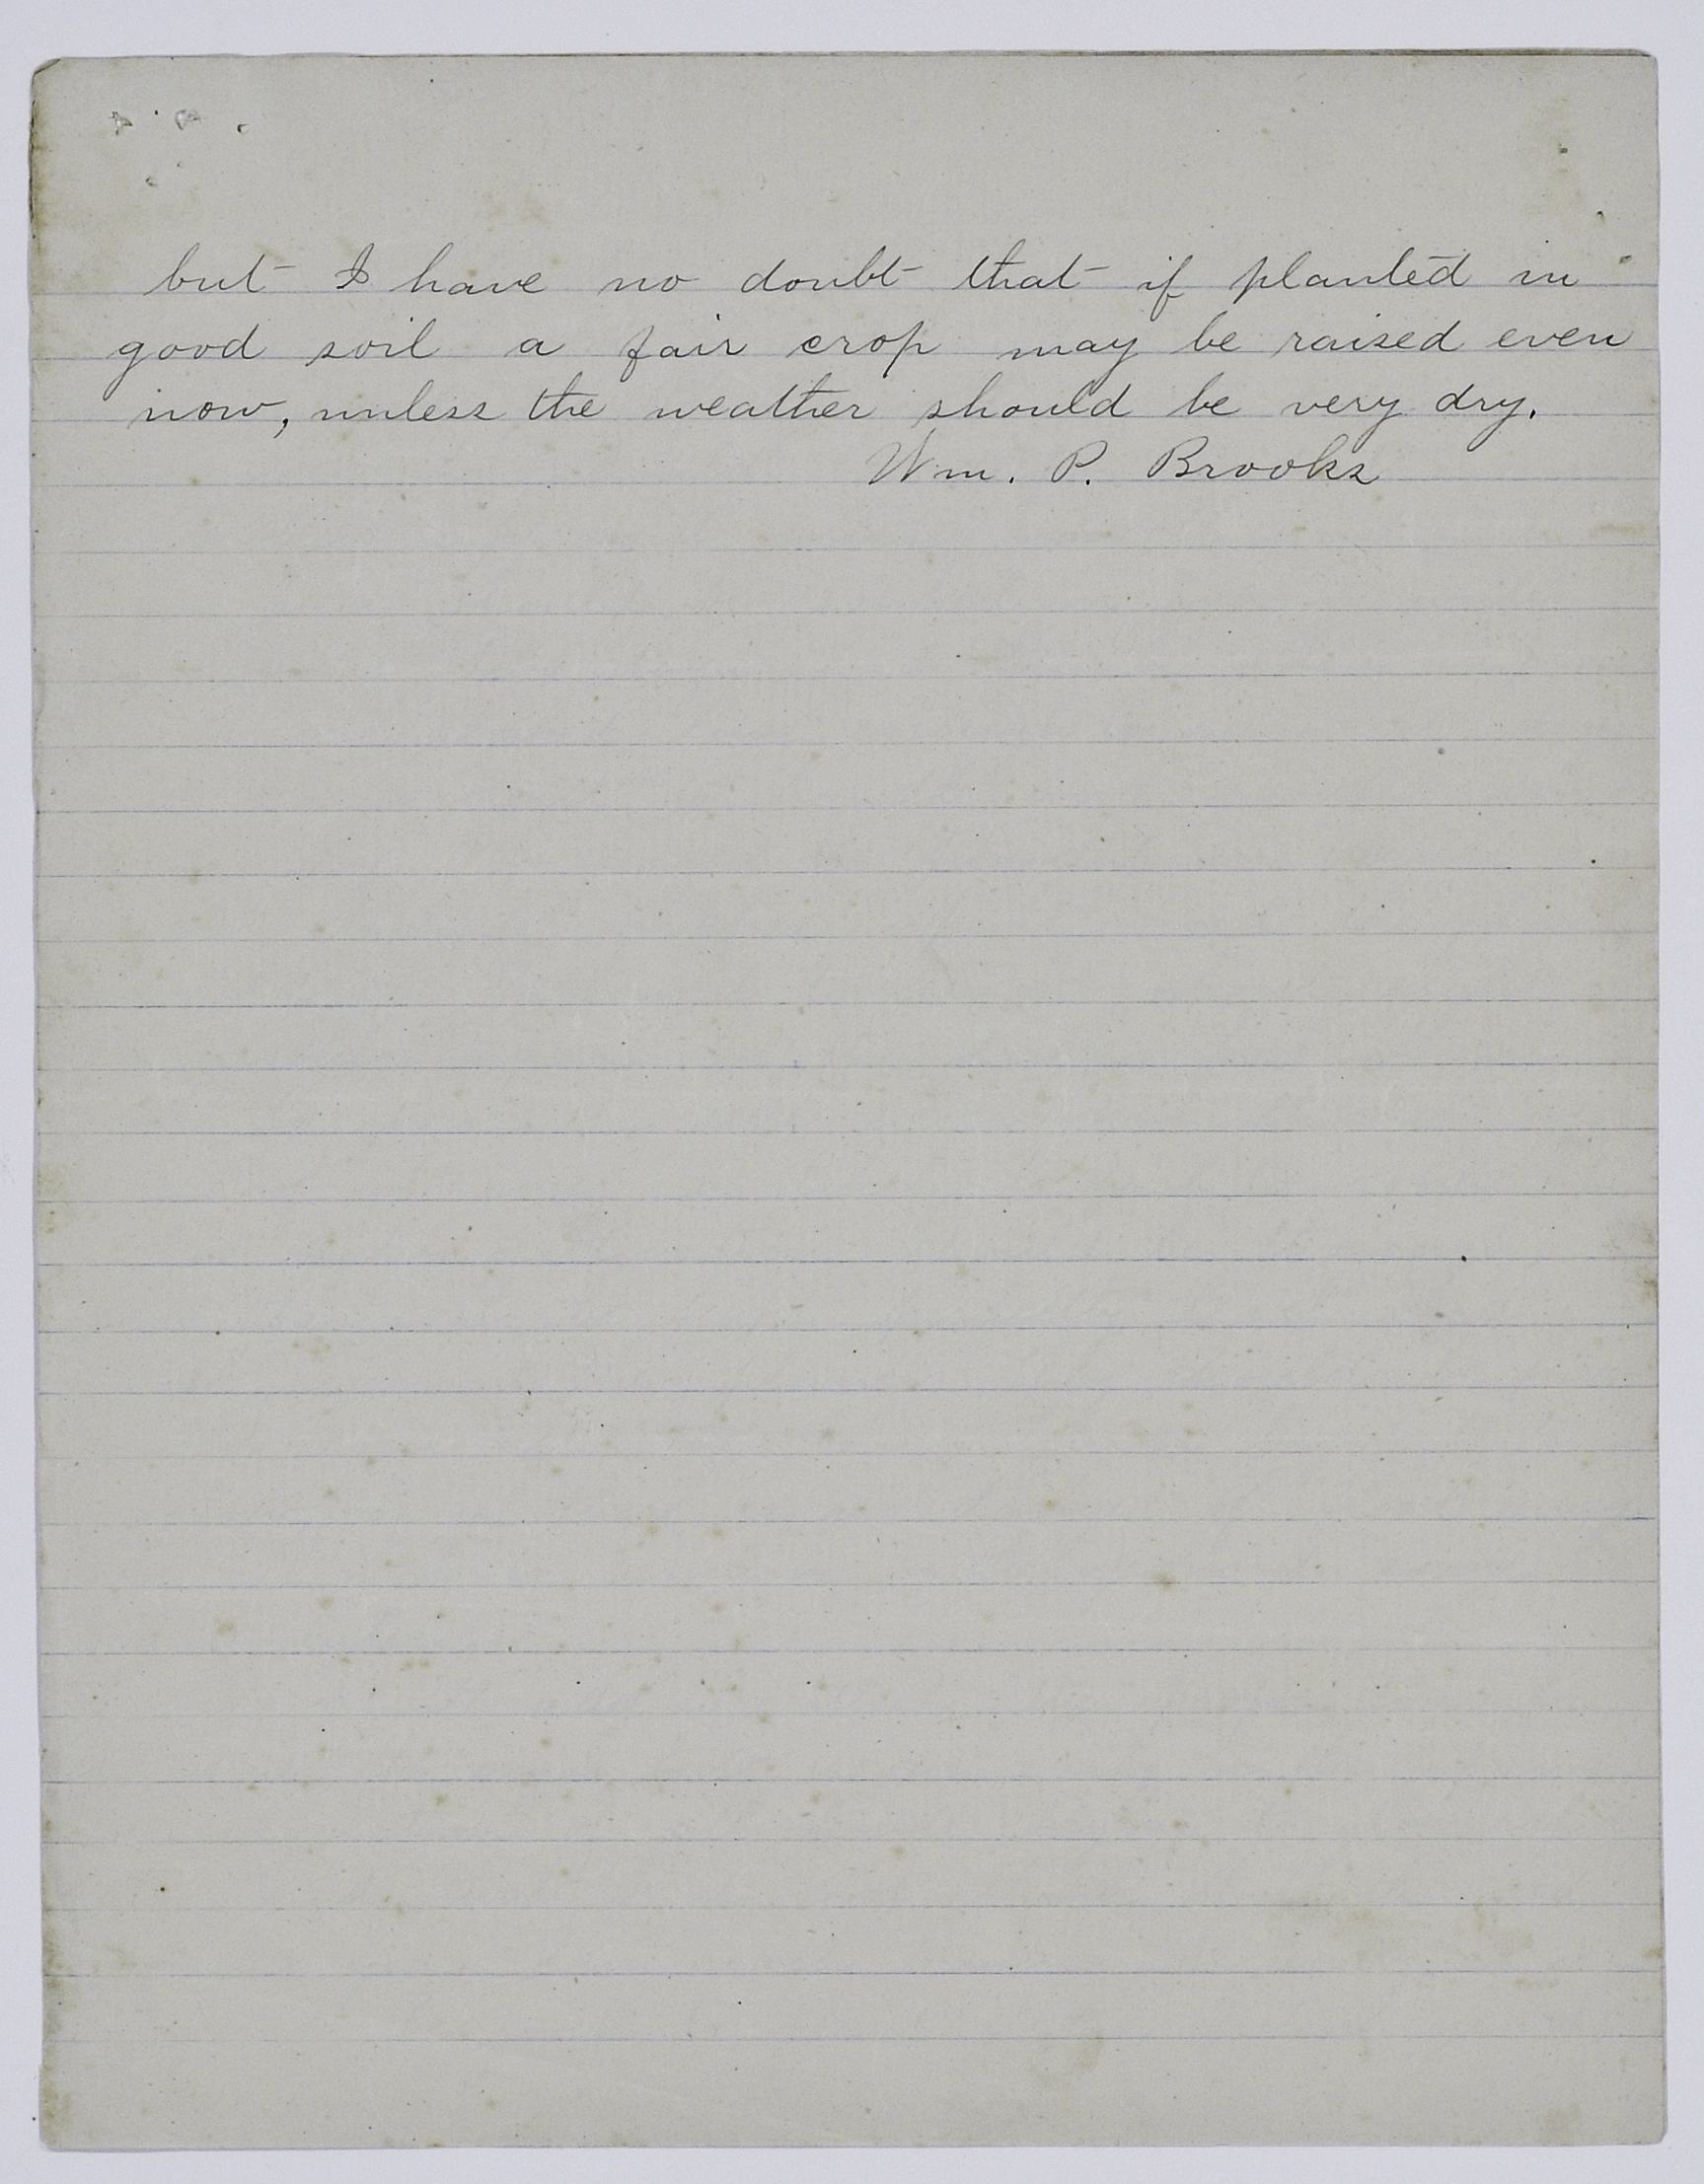 but I have no doubt that if planted in
good soil a fair crop may be raised even
now, unless the weather should be very dry.
Wm. P. Brooks